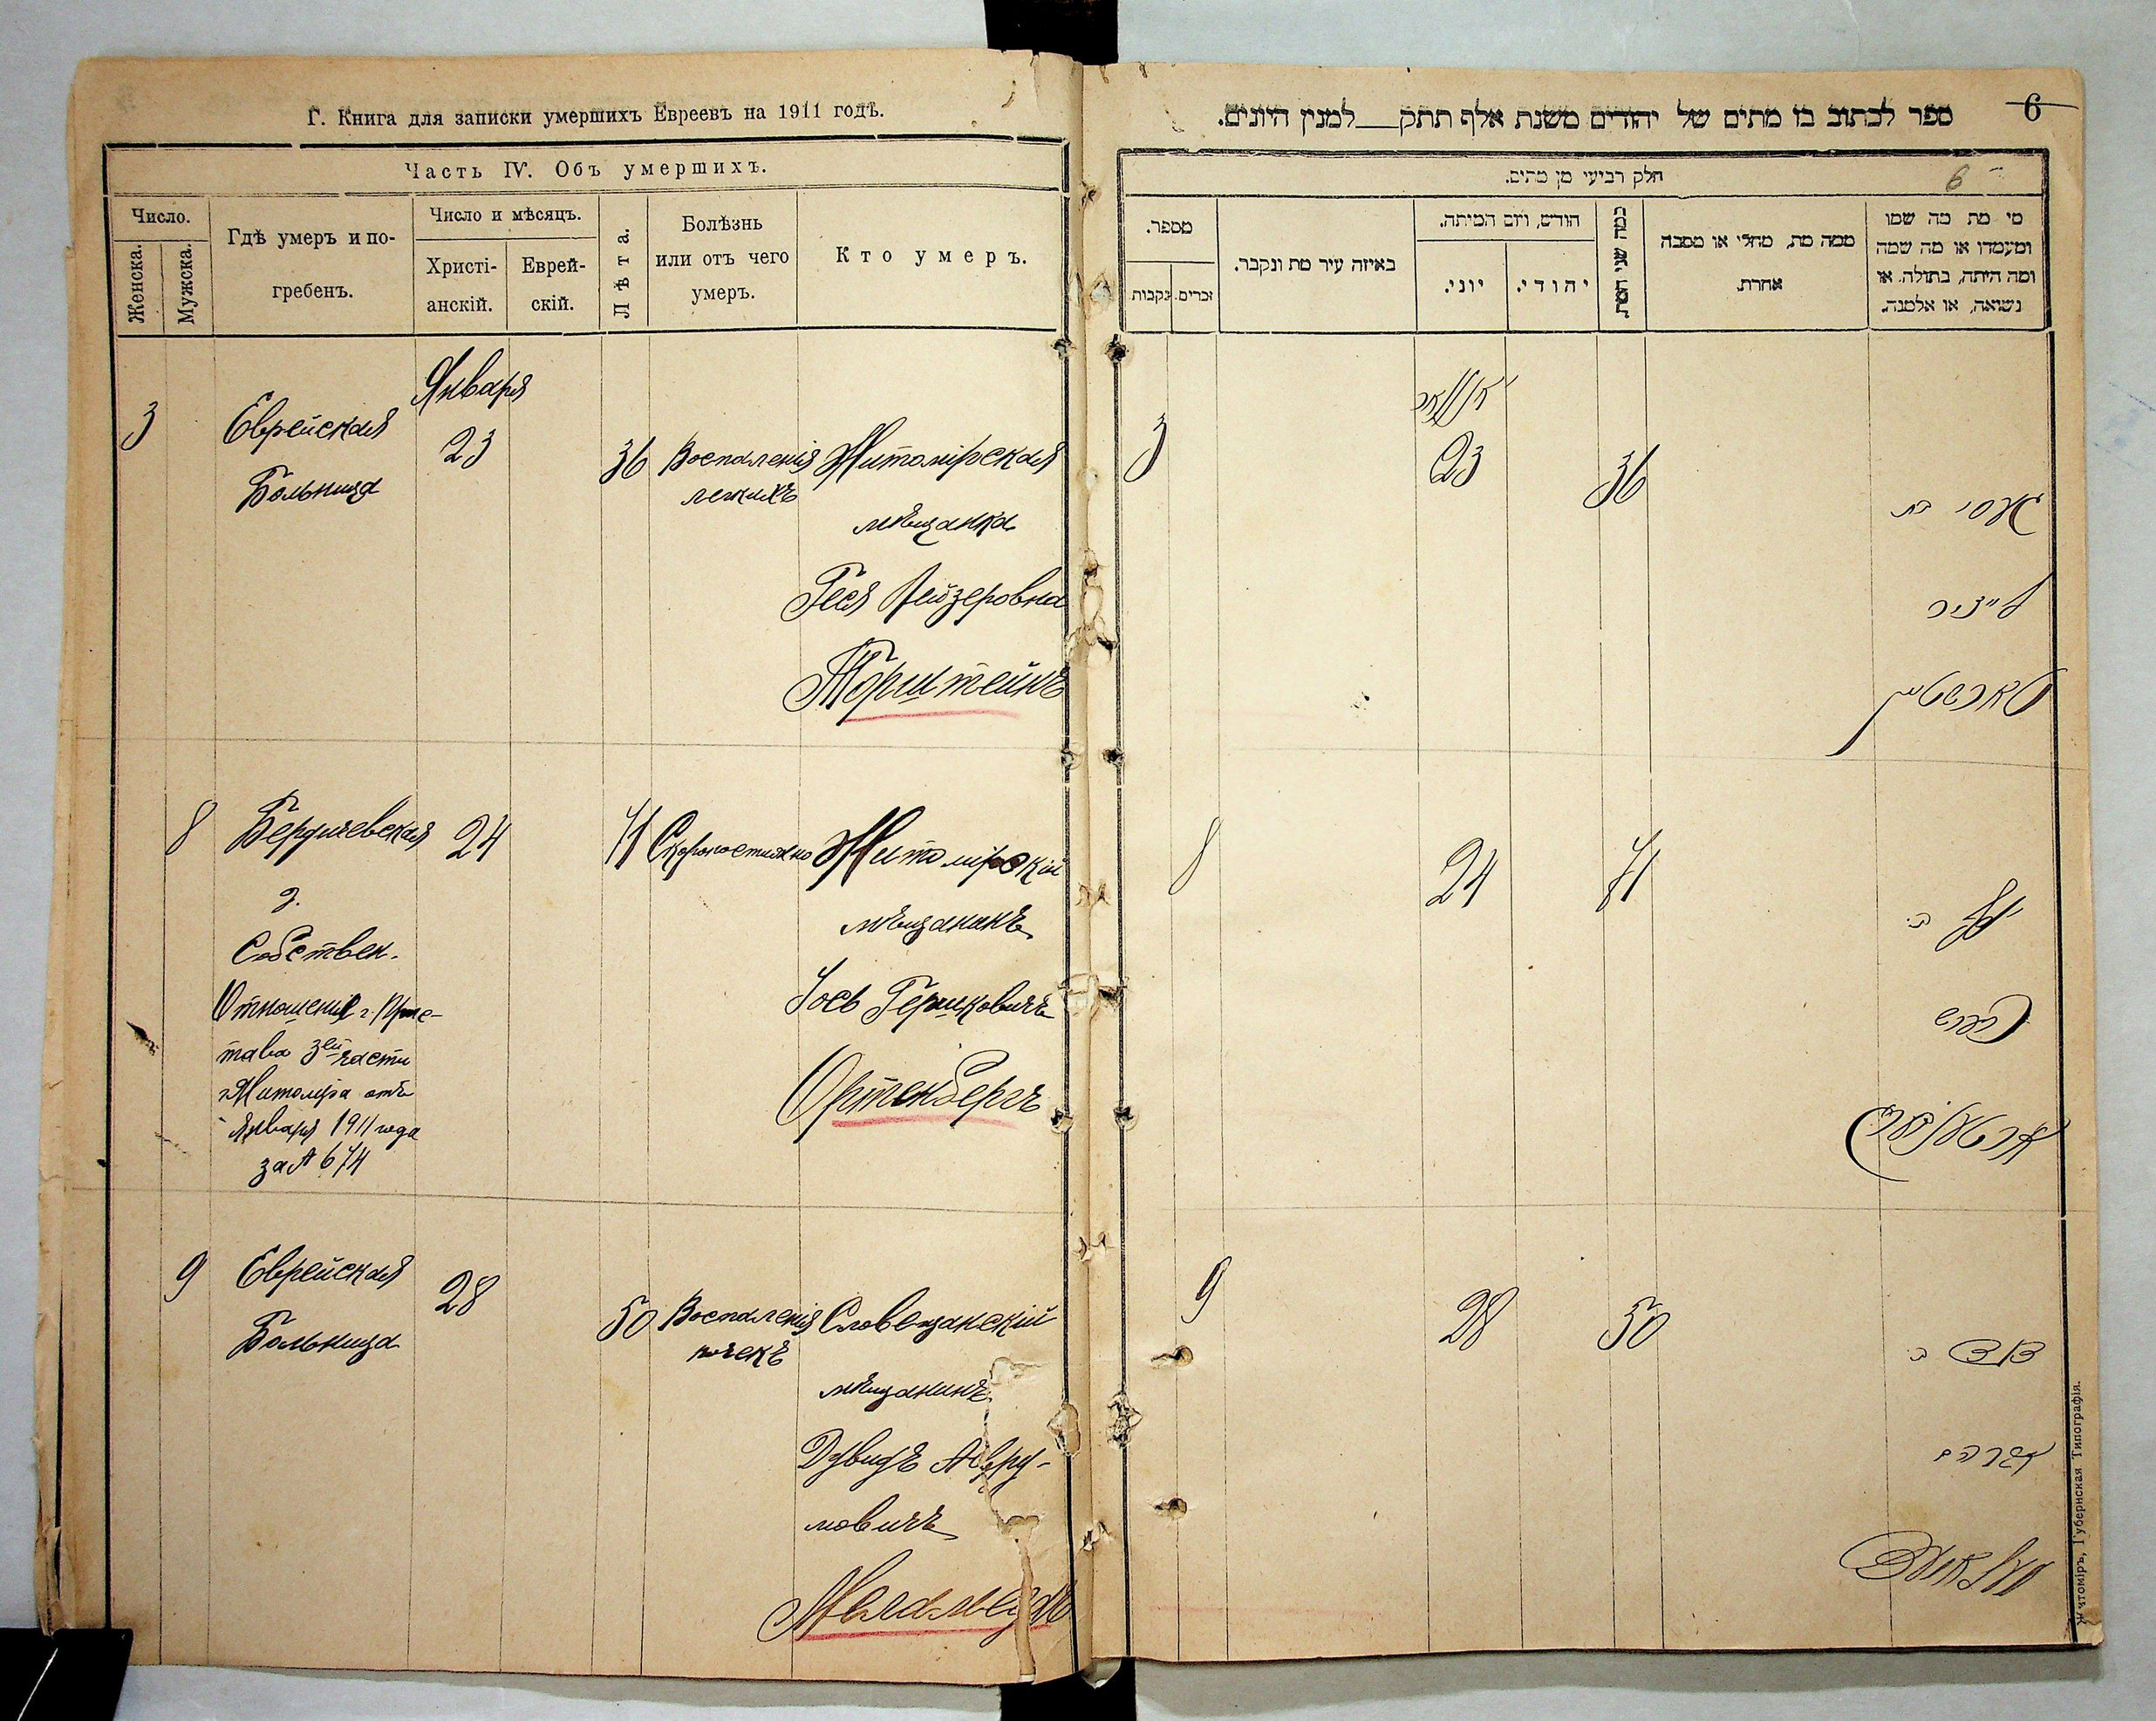 Г. Книга для записки умершихъ Евреевъ на 1911 годъ.
Часть IV. Объ умершихъ.
Число.
Женска.
Мужска.
Гдѣ умеръ и по-
гребенъ.
Число и мѣсяцъ.
Христі-
анскій.
Еврей-
скій.
Лѣта.
Болѣзнь
или отъ чего
умеръ.
Кто умеръ.
Января
3
Еврейская
Больница
23
36
Воспаленія
легкихъ
Житомірская
мѣщанка
Геся Лейзеровна
8
Бердичевская
д.
Собствен.
Отношеніе г. Прис-
тава 3ей части
г. Житоміра отъ
Января 1911 года
за № 674
24
71
Скоропостижно
Житомірскій
мѣщанинъ
Іось Гершковичъ
Ортенбергъ
9
Еврейская
Больница
28
50
Воспаленія
почекъ
Словещанскій
мѣщанинъ
Дувидъ Авру-
мовичъ
Меламедъ
ספר לכתוב בו מתים של יהודים משנת אלף תתק__למנין היונים.
6
חלק רביעי מן מתים.
6
מספר.
נקבות
זכרים.
באיזה עיר מת ונקבר.
חודש, ויום המיתה.
יוני.
יהודי.
כמה שני המת
ממה מת, מחלי או מסבה
אחרת.
מי מת מה שמו
ומעמדו או מה שמה
ומה היתה, בתולה. או
נשואה, או אלמנה.
יאנואר
3
23
36
געסי בת
לייזיר
8
24
71
יוסף ב.
הערש
ארטענבערג
9
28
50
דוד ב.
אברהם
מעלאמעד
Житоміръ, Губернская Типографія.